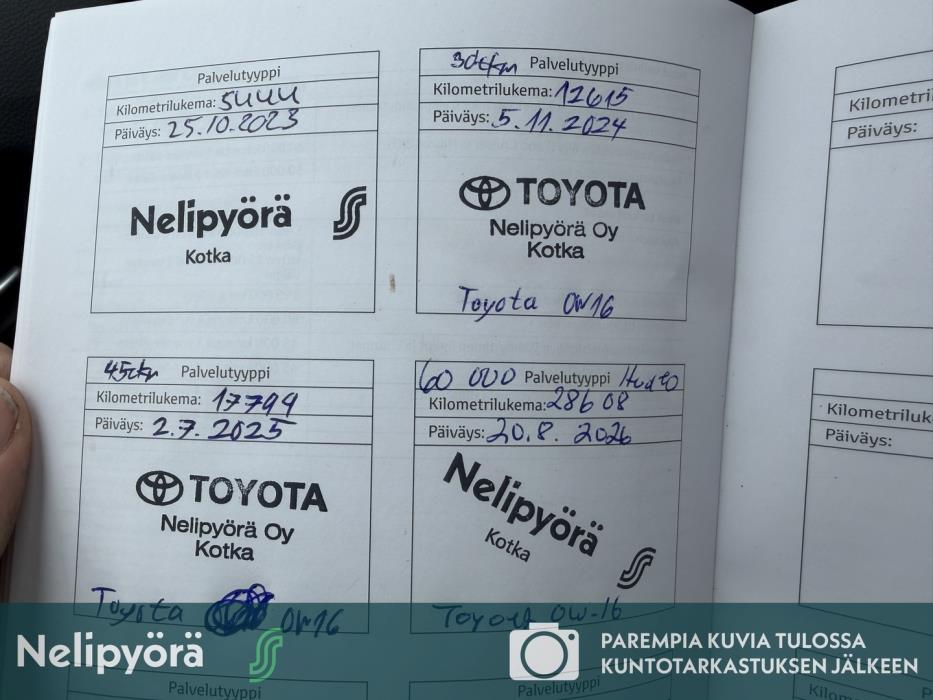 Palvelutyyppi
Kilometrilukema: 5444
Päiväys: 25.10.2023
Nelipyörä
Kotka
30tkm Palvelutyyppi
Kilometrilukema: 12615
Päiväys: 5.11.2024
TOYOTA
Nelipyörä Oy
Kotka
Toyota 0W16
45tkm Palvelutyyppi
Kilometrilukema: 17799
Päiväys: 2.7.2025
TOYOTA
Nelipyörä Oy
Kotka
Toyota 0W16
60 000 Palvelutyyppi Huolto
Kilometrilukema: 28608
Päiväys: 20.8.2026
Nelipyörä
Kotka
Toyota 0W-16
Kilometri
Päiväys:
Kilometriluk
Päiväys:
Nelipyörä
PAREMPIA KUVIA TULOSSA
KUNTOTARKASTUKSEN JÄLKEEN
Palvelutyyppi
Palvelutyyppi